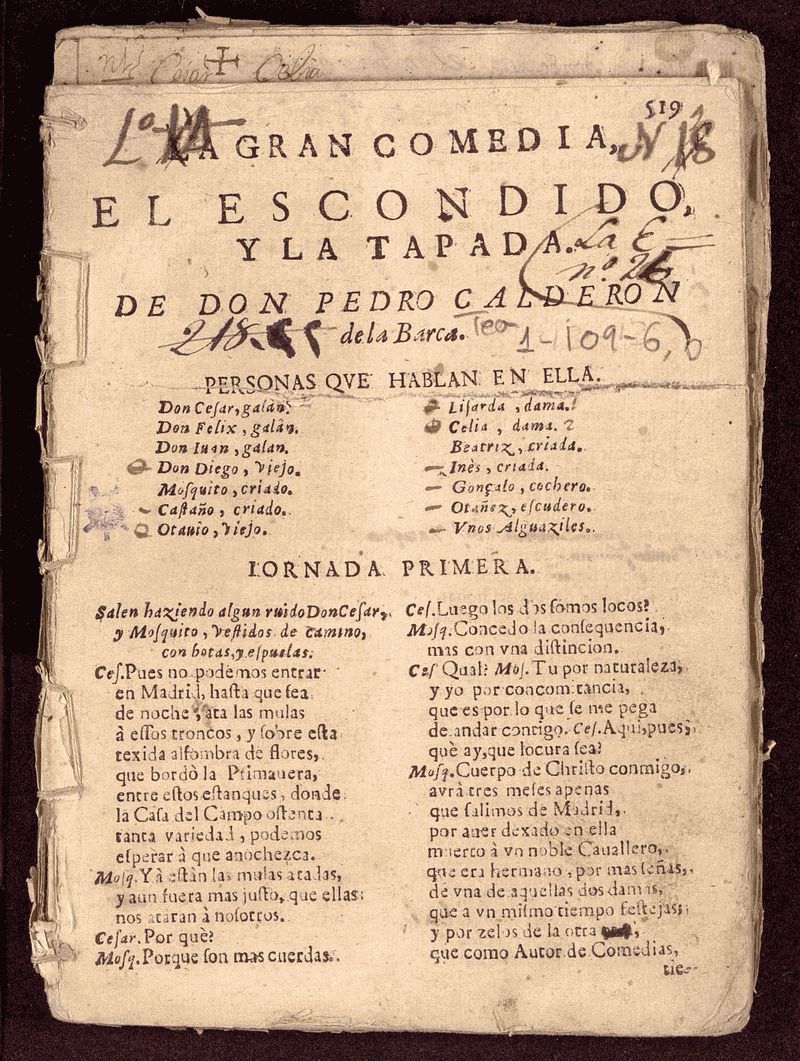 Cesar Celia
519
Lo
N 18
LA GRAN COMEDIA,
EL ESCONDIDO,
Y LA TAPADA.
La E
nº 26
DE DON PEDRO CALDERON
de la Barca.
Tea
1-109-6,
PERSONAS QVE HABLAN EN ELLA.
Don Ceſar, galán.
Don Felix, galán.
Don Iuan, galan.
Don Diego, Viejo.
Moſquito, criado.
Caſtaño, criado.
Otauio, Viejo.
Liſarda, dama.
Celia, dama.
Beatriz, criada.
Inès, criada.
Gonçalo, cochero.
Otañez, eſcudero.
Vnos Alguaziles.
IORNADA PRIMERA.
Salen haziendo algun ruido Don Ceſar,
y Moſquito, veſtidos de camino,
con botas, y eſpuelas.
Ceſ. Pues no podemos entrar
en Madrid, haſta que ſea
de noche, ata las mulas
à eſſos troncos, y ſobre eſta
texida alfombra de flores,
que bordò la Primauera,
entre eſtos eſtanques, donde
la Caſa del Campo oſtenta
tanta variedad, podemos
eſperar à que anochezca.
Moſq. Yà eſtàn las mulas atadas,
y aun fuera mas juſto, que ellas
nos ataran à noſotros.
Ceſar. Por què?
Moſq. Porque ſon mas cuerdas.
Ceſ. Luego los dos ſomos locos?
Moſq. Concedo la conſequencia,
mas con vna diſtincion.
Ceſ Qual? Moſ. Tu por naturaleza,
y yo por concomitancia,
que es por lo que ſe me pega
de andar contigo. Ceſ. Aqui, pues,
què ay, que locura ſea?
Moſq. Cuerpo de Chriſto conmigo,
avrà tres meſes apenas
que ſalimos de Madrid,
por auer dexado en ella
muerto à vn noble Cauallero,
que era hermano, por mas ſeñas,
de vna de aquellas dos damas,
que a vn miſmo tiempo feſtejas;
y por zelos de la otra
que como Autor de Comedias,
tie-